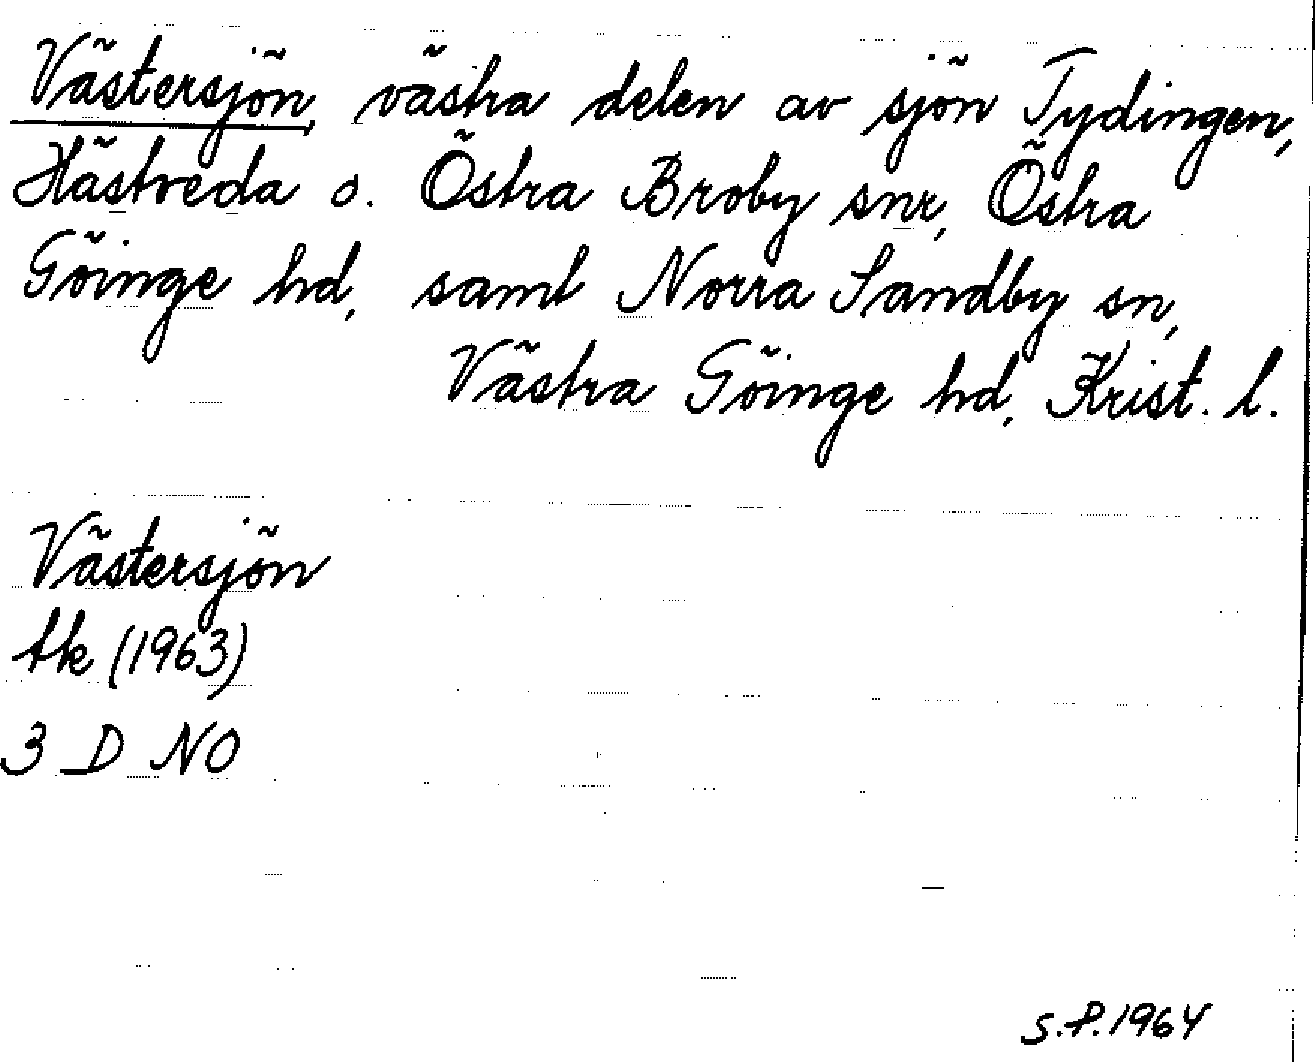 Västersjön, västra delen av sjön Tydingen,
Hästveda o. Östra Broby snr, Östra
Göinge hd, samt Norra Sandby sn,
Västra Göinge hd, Krist. l.
Västersjön
tk (1963)
3 D NO
S.P. 1964